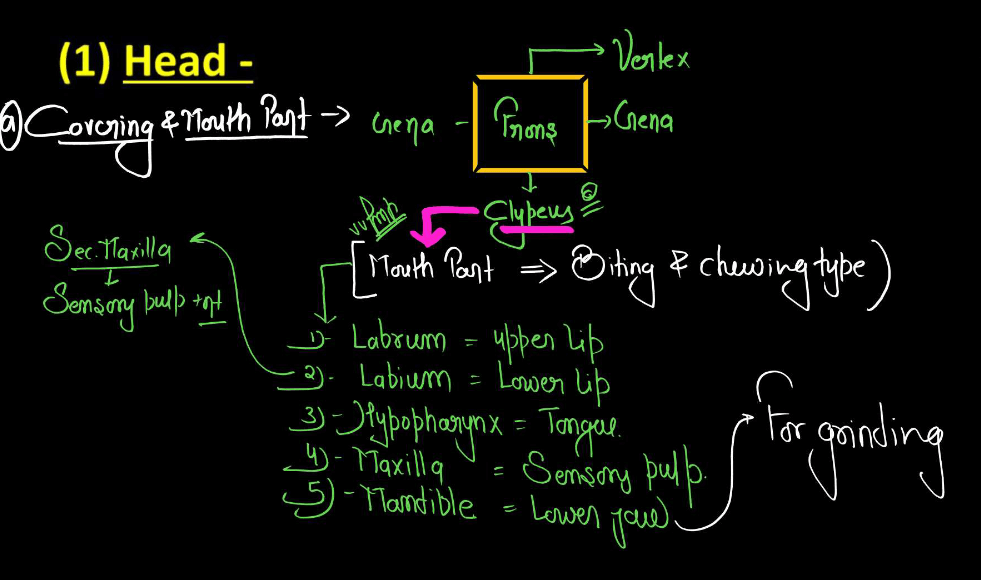 (1) Head -
Vertex
a) Covering & Mouth Part → Gena - Frons → Gena
Clypeus
Imp
Sec. Maxilla
[Mouth Part ⇒ Biting & chewing type)
Sensory pulp +nt
1)- Labrum = upper lip
2)- Labium = Lower lip
3)- Hypopharynx = Tongue.
For grinding
4)- Maxilla = Sensory pulp.
5)- Mandible = Lower jaw